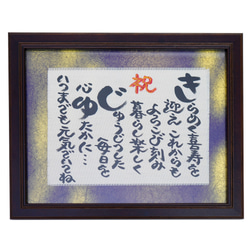 きらめく喜寿を
迎えこれからも
よろこび刻み
祝
暮らし楽しく
じゅうじつした
毎日を
心ゆたかに…
いつまでも元気でいてね